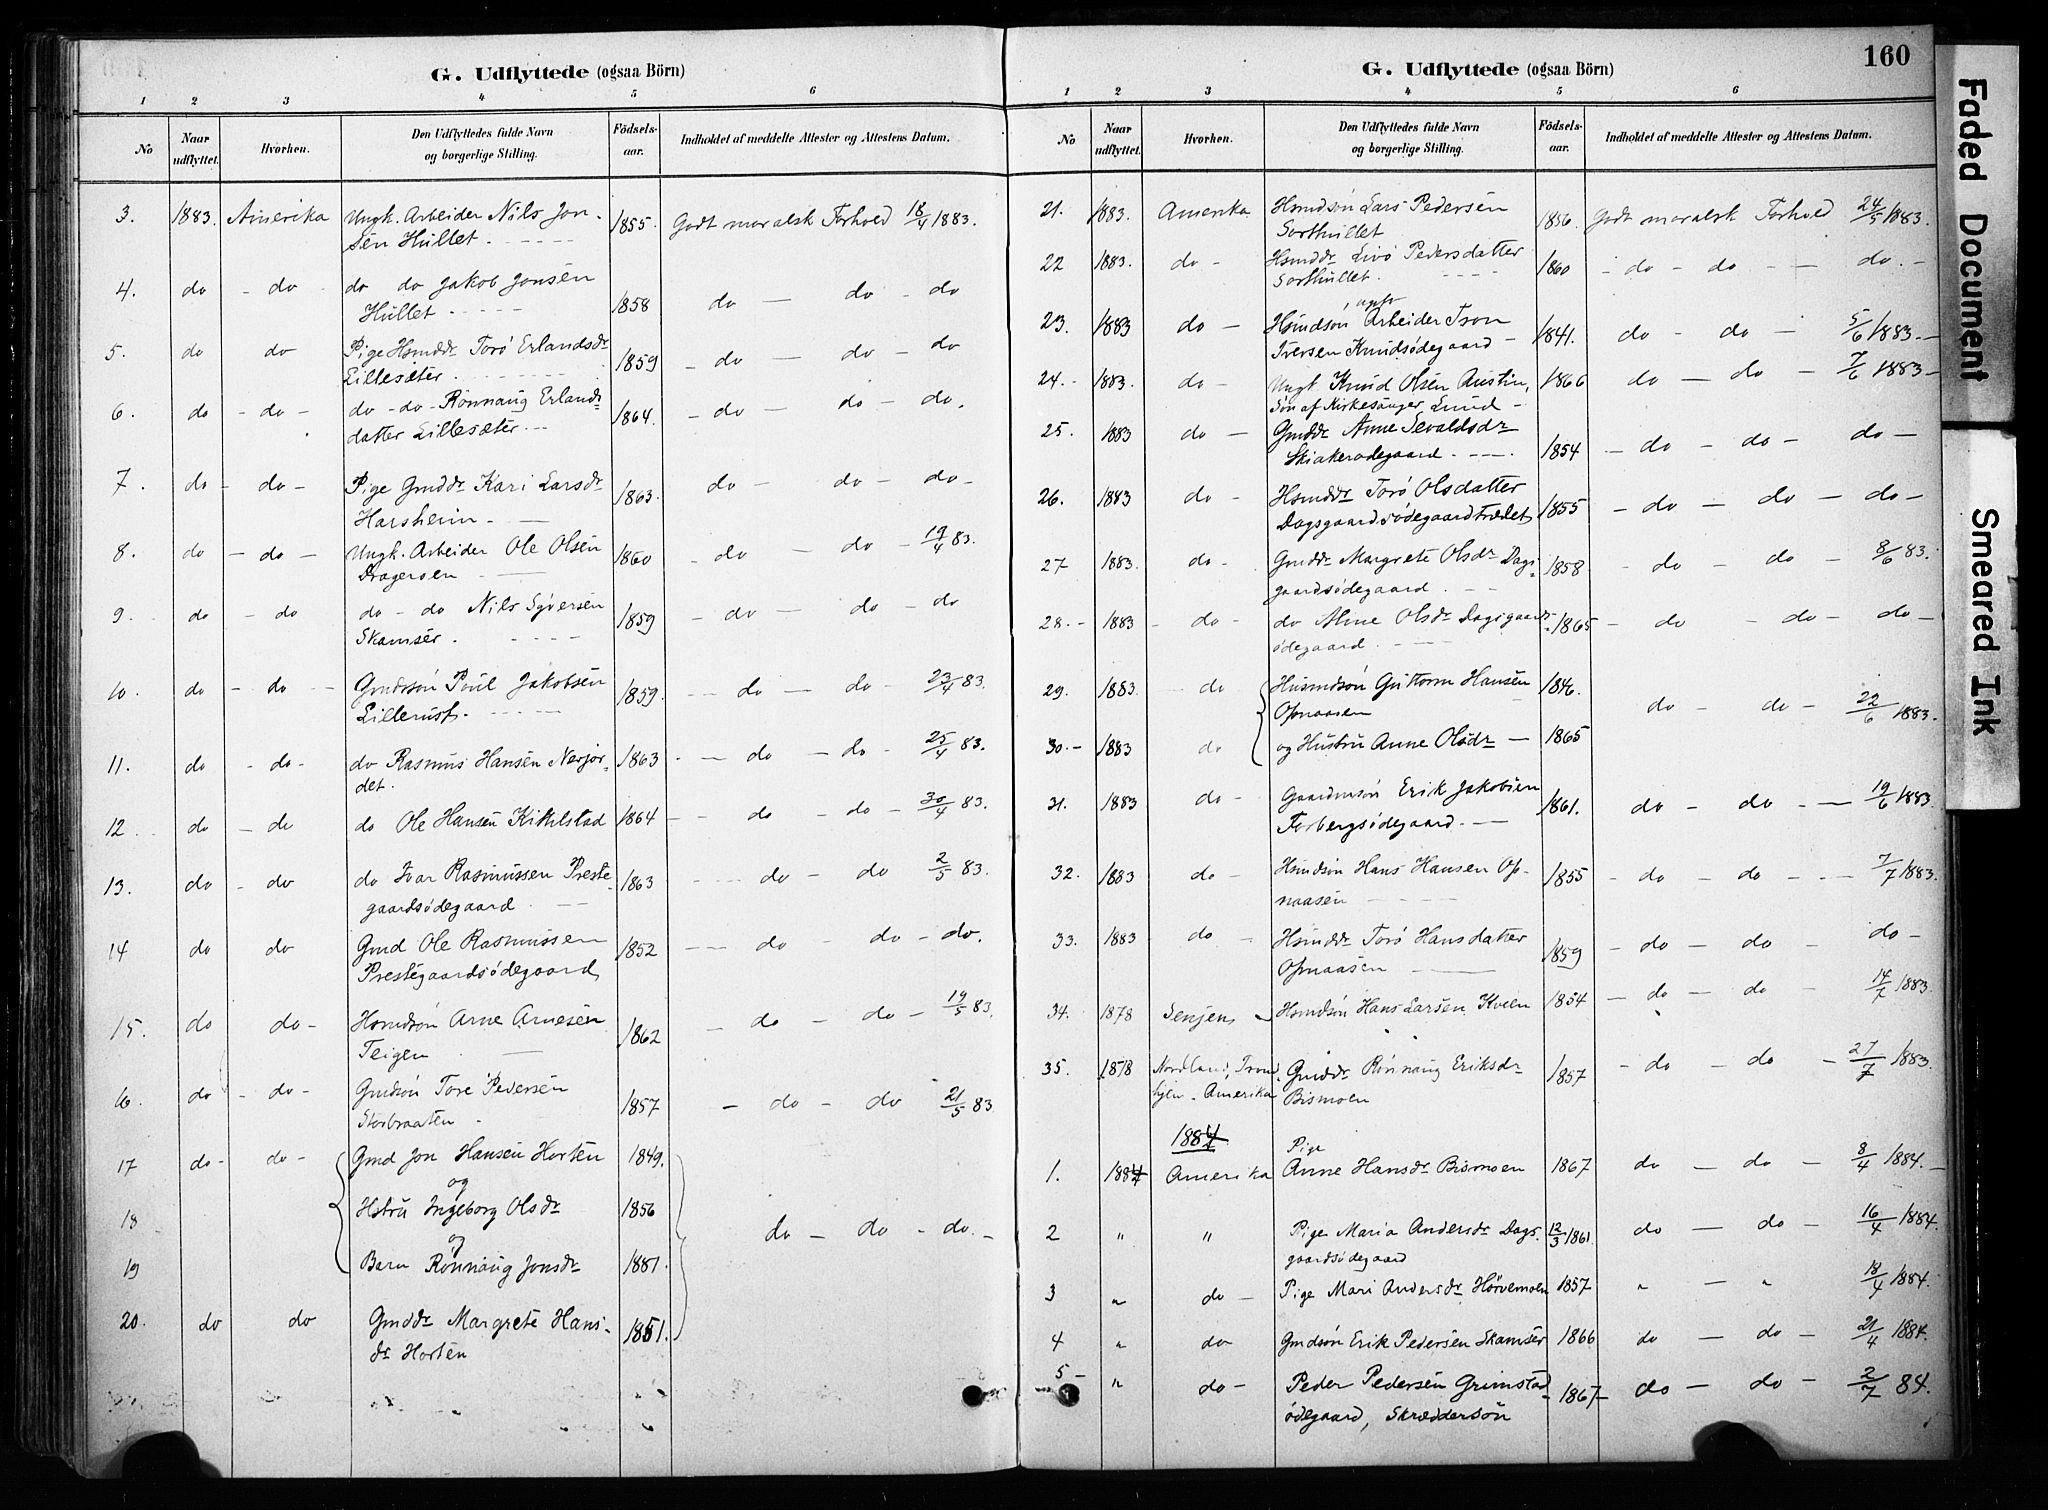 G. Udflyttede (ogsaa Börn)
1 2 3 4 5 6
No Naar udflyttet. Hvorhen. Den Udflyttedes fulde Navn og borgerlige Stilling. Födsels-aar. Indholdet af meddelte Attester og Attestens Datum.
3. 1883. Amerika Ungk. Arbeider Nils Jon- 1855. Godt moralsk Forhold 18/4 1883.
sen Hullet.
4. do - do do do Jakob Jonsen 1858 do - do - do
Hullet
5. do do Pige Hsmddr Torö Erlandsdr 1859 - do - do - do
Lillesæter
6. do - do - do - do - Rönnaug Erlands- 1864. - do - do - do.
datter Lillesæter
7. do - do - Pige Gmddr Kari Larsdr 1863. do - do - do -
Harsheim
8. do - do - Ungk. Arbeider Ole Olsen 1860 - do - do - 19/4 83.
Dragersen
9. do - do do - do Nils Syversen 1859 - do - do - do
Skamser.
10. do - do - Gmdssön Poul Jakobsen 1859. - do - do - 23/4 83.
Lillerust.
11. do - do - do Rasmus Hansen Nerjor- 1863 - do - do - 25/4 83.
det.
12 do - do do Ole Hansen Kittilstad 1864 - do - do - 30/4 83.
13. do - do do Ivar Rasmussen Preste- 1863 - do - do 2/5 83.
gaardsödegaard
14 do do Gmd Ole Rasmussen 1852 - do - do - do.
Prestegaardsödegaard
15. do do - Hsmdsön Arne Arnesen 1862 - do - do - 19/5 83.
Teigen
16. do - do - Gmdsön Tore Pedersen 1857 - do - do 21/5 83
Storbraaten
17 do - do - Gmd Jon Hansen Horten 1849.
og
18 Hstru Ingeborg Olsdr 1856 do - do - do. -
og
19 Barn Rönnaug Jonsdr 1881.
20. do do Gmddr Margrete Hans- 1851.
dr Horten
160
G. Udflyttede (ogsaa Börn)
1 2 3 4 5 6
No Naar udflyttet. Hvorhen. Den Udflyttedes fulde Navn og borgerlige Stilling. Födsels-aar. Indholdet af meddelte Attester og Attestens Datum.
21. 1883. Amerika Hsmdsön Lars Pedersen 1856. Godt moralsk Forhold 24/5 1883.
Sorthullet
22 1883. do - Hsmddr Livö Pedersdatter 1860 - do - do - do. -
Sorthullet.
23. 1883 do - Hsmdsön Arbeider Tron 1841. do - do - 5/6 1883. -
Iversen Knudsödegaard -
24. - 1883. do - Ungk Knud Olsen Austin, 1866 do - do - 7/6 1883 -
Sön af Kirkesanger Lund -
25. 1883 do - Gmddr Anne Sevaldsdr 1854 - do - do - do -
Skiakerødegaard
26. 1883 do - Hsmddr Torö Olsdatter 1855 - do - do - do -
Dagsgaardsödegaardtrædet
27 1883. do - Gmddr Margrete Olsdr Dags- 1858 - do - do - 8/6 83.
gaardsödegaard
28. - 1883 - do - do Anne Olsdr Dagsgaards- 1865 - do - do - do -
ödegaard
29. 1883 - do Husmdsön Guttorm Hansen 1846.
Opnaasen do - do - 22/6 1883.
30. - 1883 do og Hustru Anne Olsdr - 1865
31. 1883 do - Gaardmsön Erik Jakobsen 1861. do - do - 19/6 1883.
Forbergsödegaard.
32. 1883 do - Hsmdsön Hans Hansen Op- 1855 - do - do - 7/7 1883.
naasen
33. 1883 - do - Hsmddr Torö Hansdatter 1859 - do - do - do -
Opnaasen
34. 1878 Senjen - Hsmdsön Hans Larsen Kveen 1854 - do - do - 14/7 1883.
35. 1878 Nordland, Trond- Gmddr Rönnaug Eriksdr 1857 - do - do - 27/7 1883
hjem - Amerika Bismoen
1884 Pige
1. 1884 Amerika Anne Hansdr Bismoen 1867 do - do - 8/4 1884. -
2 " " Pige Maria Andersdr Dags- 12/3 1861. do - do - 16/4 1884.
gaardsödegaard
3 " do - Pige Mari Andersdr Hörvemoen 1857 " - " 18/4 1884.
4 " do Gmdsön Erik Pedersen Skamser 1866 do - do - 21/4 1884.
5 - " do - Peder Pedersen Grimstad- 1867 - do - do - 2/7 84.
ödegaard, Skræddersön
Faded Document
Smeared Ink